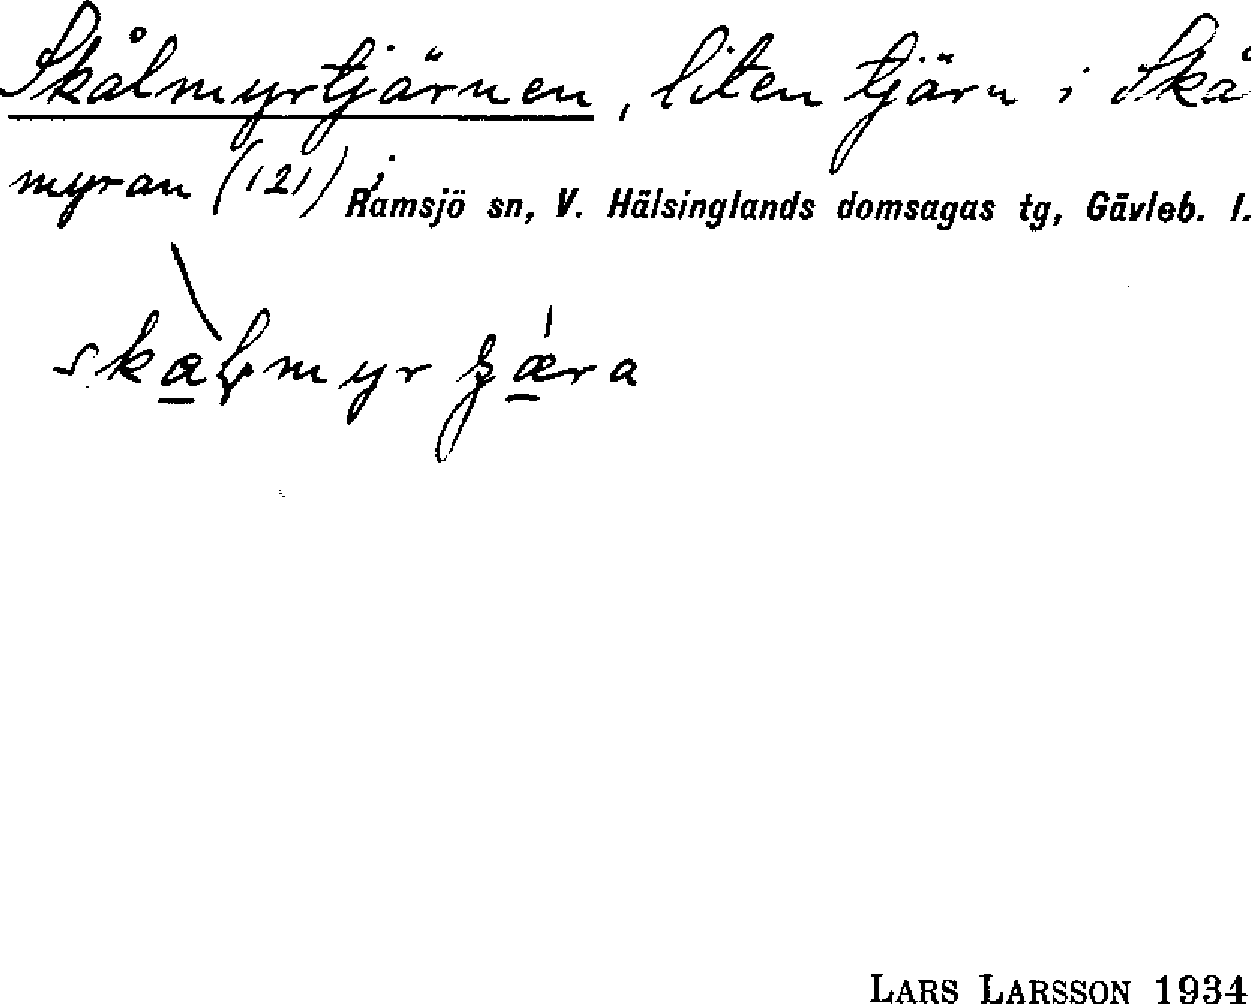 Skålmyrtjärnen, liten tjärn i Skå
myran (121) i
Ramsjö sn, V. Hälsinglands domsagas tg, Gävleb. l.
LARS LARSSON 1934